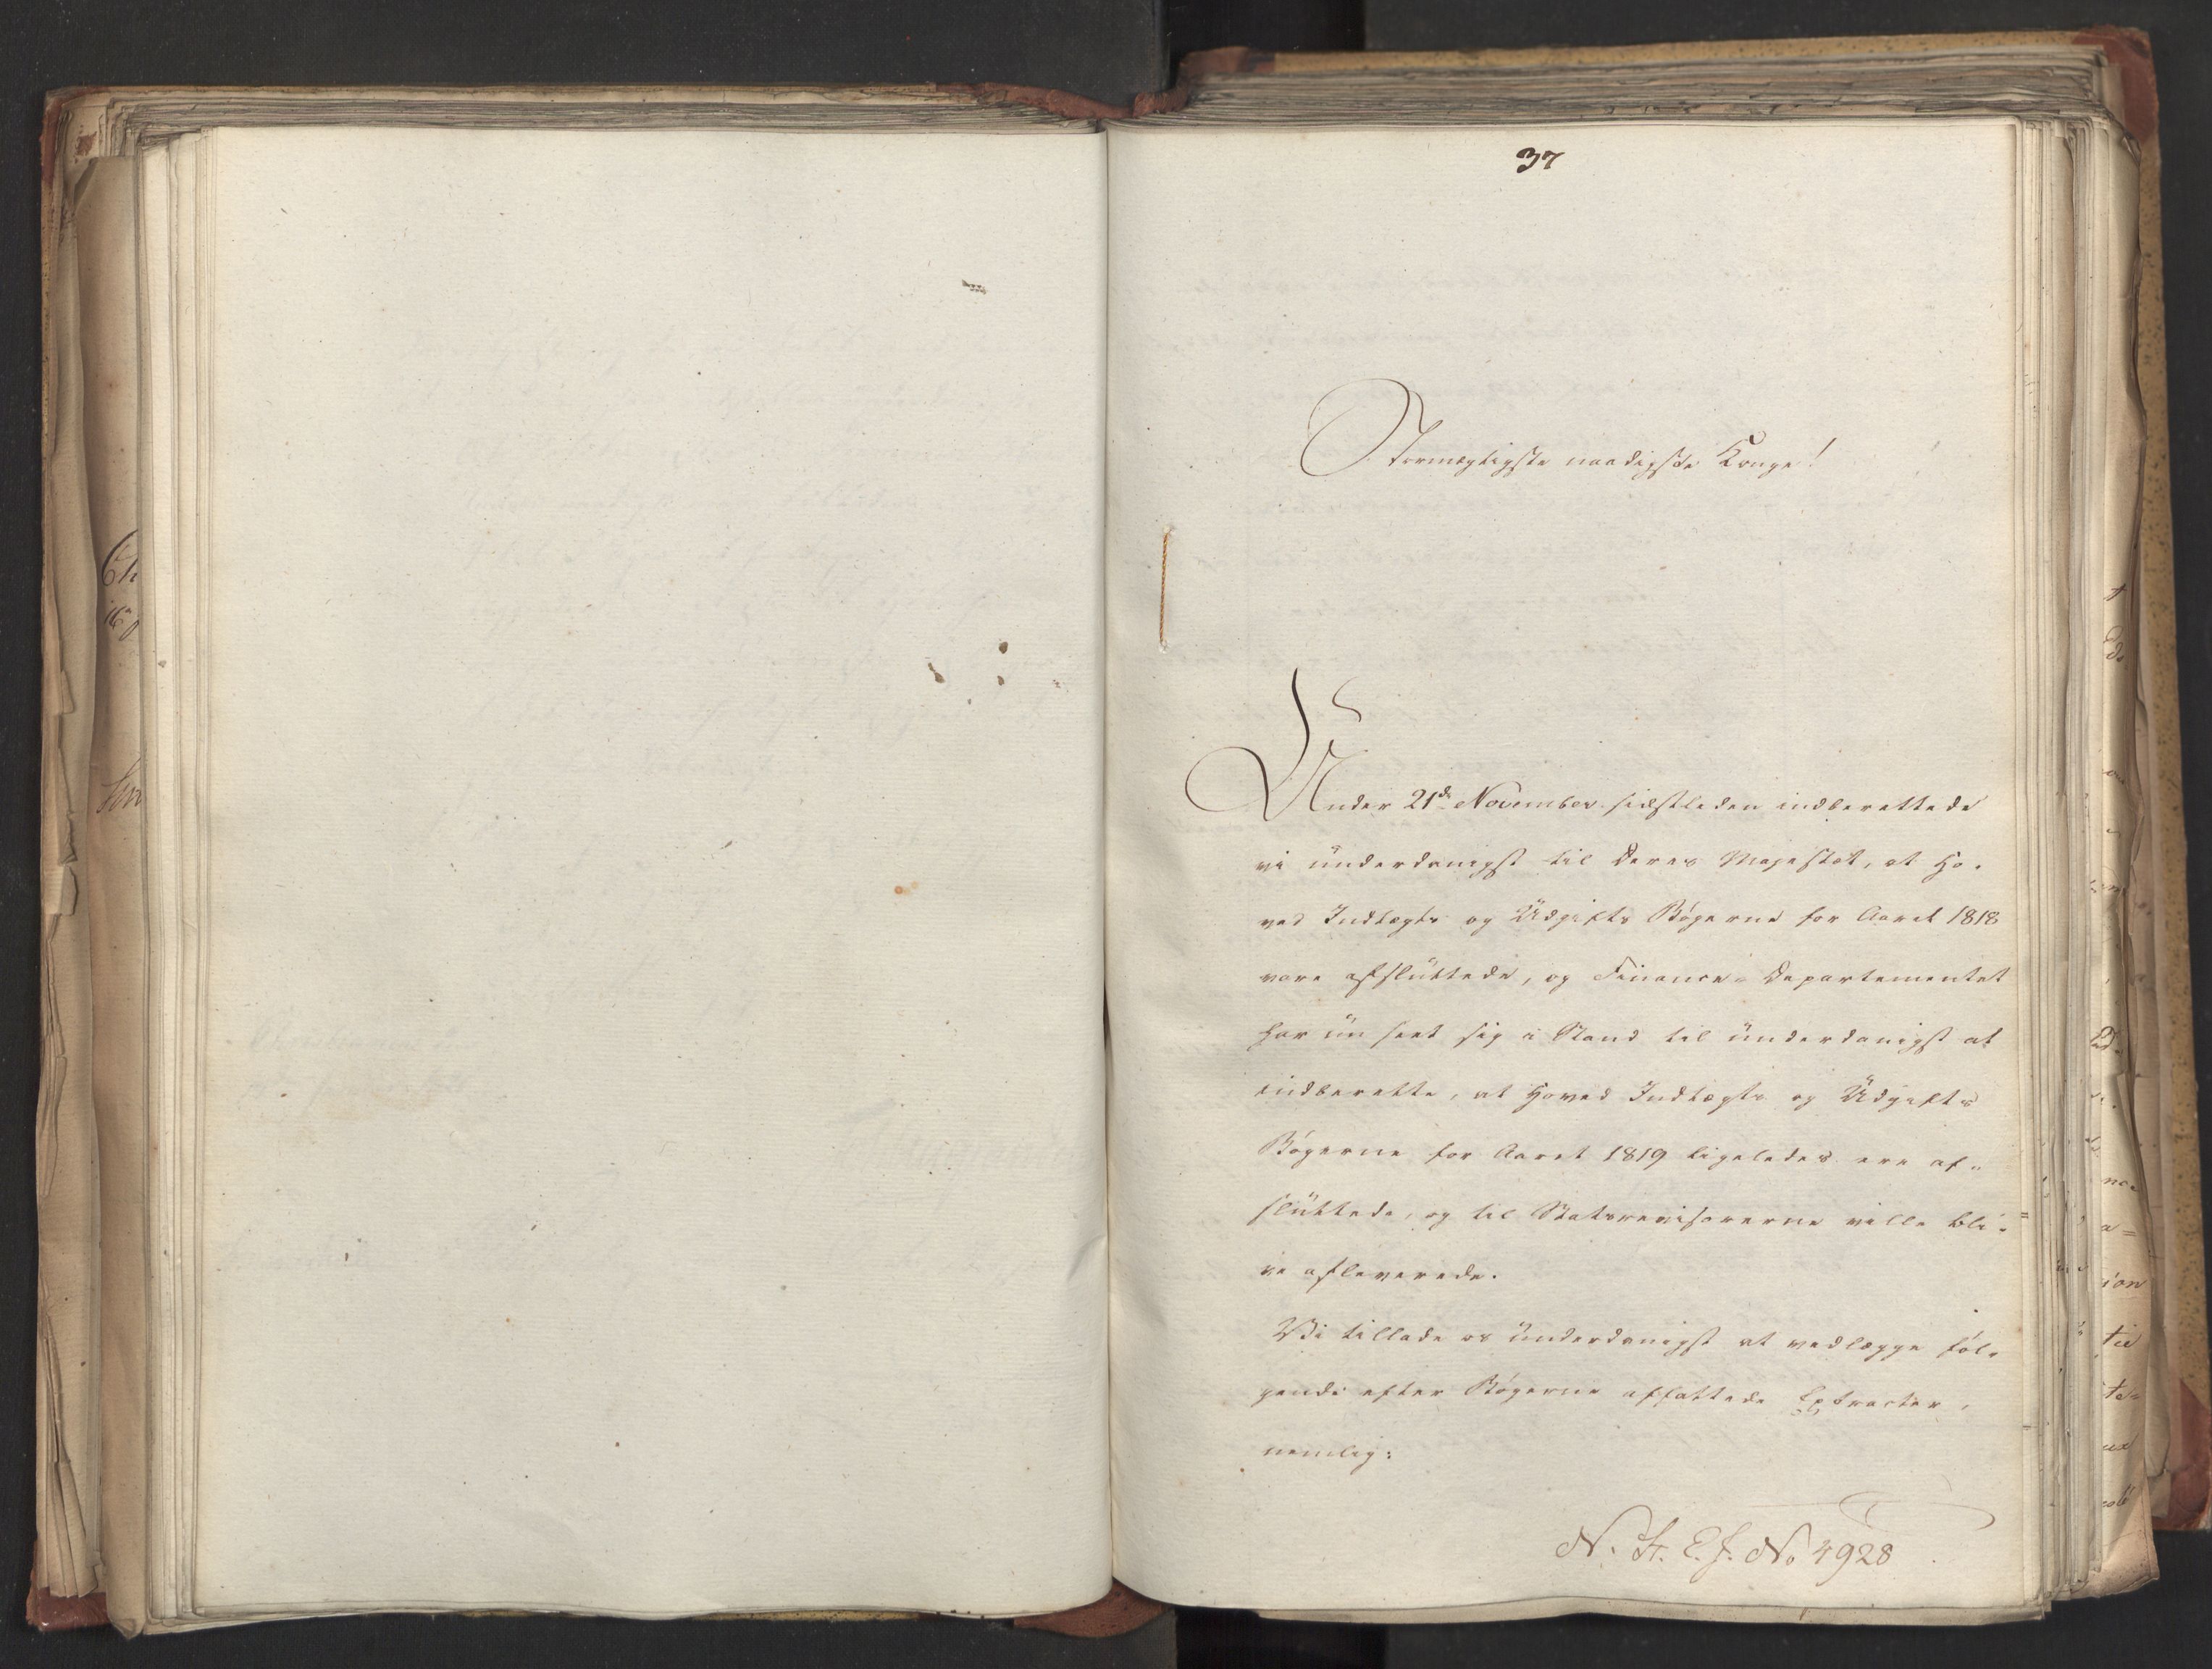 37
Stormægtigste naadigste Konge!
Under 21de November sidstleden indberettede
vi underdanigst til Deres Majestæt, at Ho-
ved Indtægts og Udgifts Bøgerne for Aaret 1818
vare afsluttede, og Finance-Departementet
har nu seet sig i Stand til underdanigst at
indberette, at Hoved Indtægts og Udgifts
Bøgerne for Aaret 1819 ligeledes ere af-
sluttede, og til Statsrevisorerne ville bli-
ve afleverede.
Vi tillade os underdanigst at vedlægge føl-
gende efter Bøgerne affattede Extracter,
nemlig:
N. St. E. J. No 4928